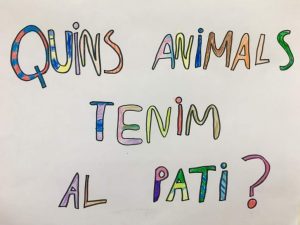 QUINS ANIMALS
TENIM
AL PATI?